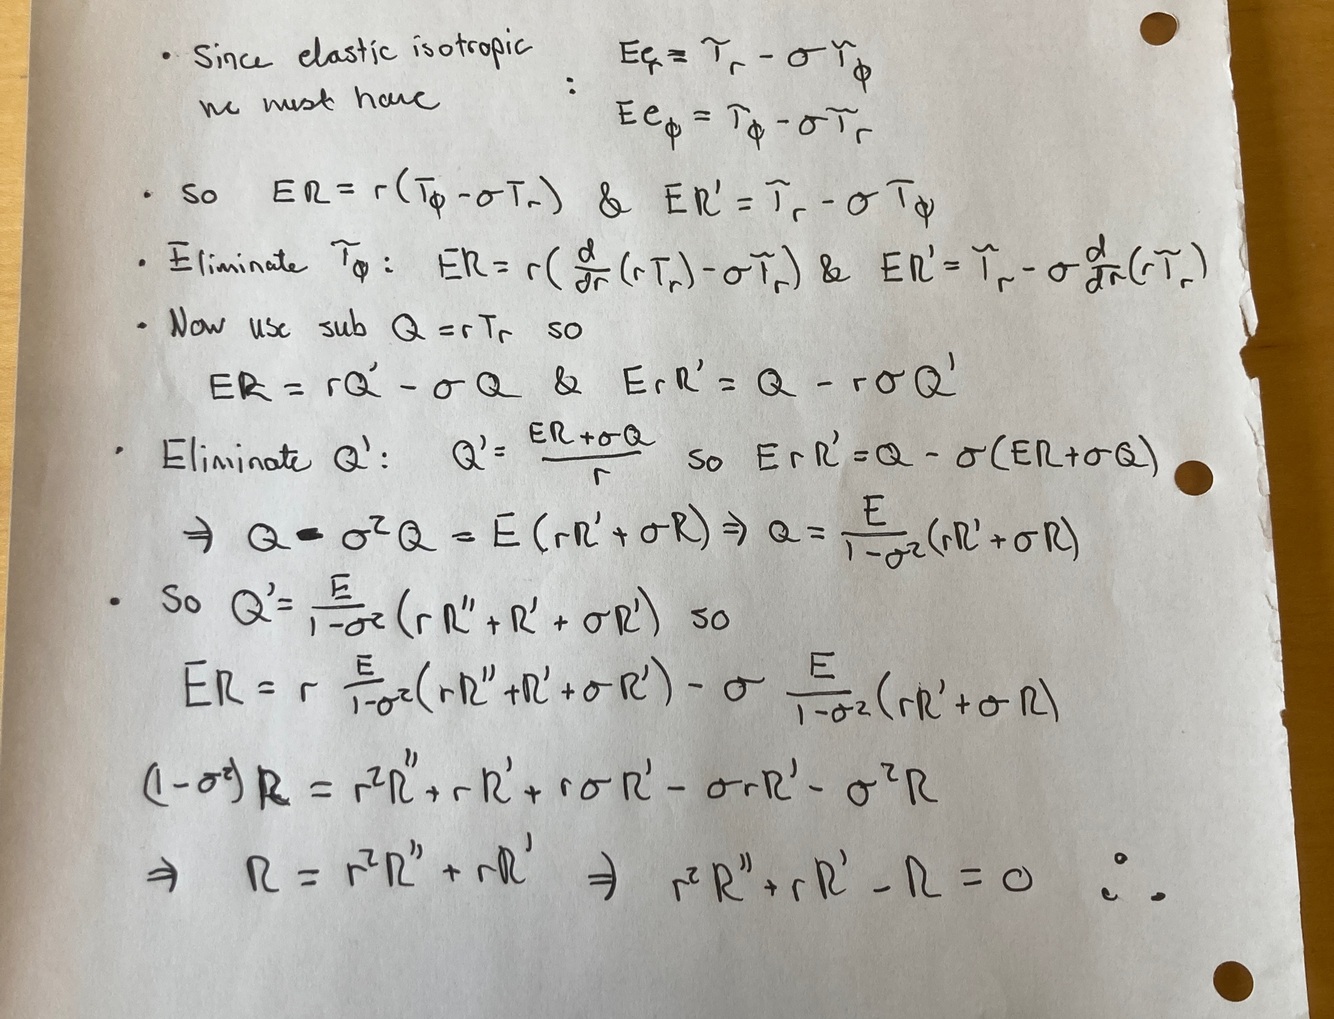 • Since elastic isotropic : Ee_r = T_r - σT_ϕ
we must have Ee_ϕ = T_ϕ - σT_r
• So ER = r(T_ϕ - σT_r) & ER' = T_r - σT_ϕ
• Eliminate T_ϕ: ER = r(d/dr(rT_r) - σT_r) & ER' = T_r - σ d/dr(rT_r)
• Now use sub Q = rT_r so
ER = rQ' - σQ & ErR' = Q - rσQ'
• Eliminate Q': Q' = (ER + σQ)/r so ErR' = Q - σ(ER + σQ)
⇒ Q - σ²Q = E(rR' + σR) ⇒ Q = E/(1-σ²) (rR' + σR)
• So Q' = E/(1-σ²) (rR'' + R' + σR') so
ER = r E/(1-σ²) (rR'' + R' + σR') - σ E/(1-σ²) (rR' + σR)
(1-σ²)R = r²R'' + rR' + rσR' - σrR' - σ²R
⇒ R = r²R'' + rR' ⇒ r²R'' + rR' - R = 0 ∴